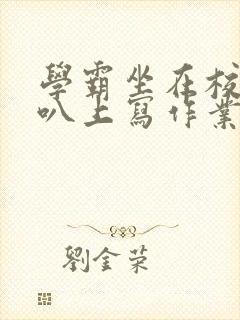 學霸坐在校
叭上寫作業
劉金荣